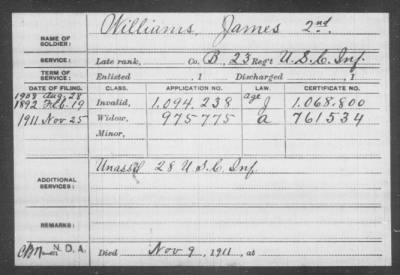 NAME OF SOLDIER: Williams, James 2nd.
SERVICE: Late rank, Co. B, 23 Reg't U.S.C. Inf.
TERM OF SERVICE: Enlisted , 1 Discharged , 1
DATE OF FILING. CLASS. APPLICATION NO. LAW. CERTIFICATE NO.
1908 Aug. 28
1892 Feb. 19 Invalid, 1,094,238 age J 1,068,800
1911 Nov 25 Widow, 975775 a 761534
Minor,
ADDITIONAL SERVICES: Unass'd 28 U.S.C. Inf.
REMARKS:
N.D.A. Died Nov 9, 1911, at